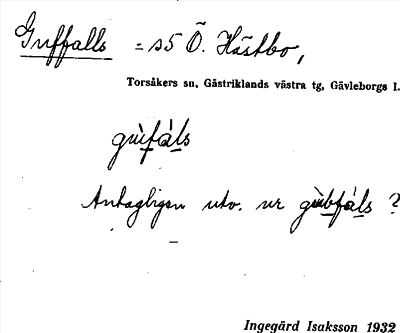 Guffalls = s5 Ö. Hästbo,
Torsåkers sn, Gästriklands västra tg, Gävleborgs l.
gùfáls
Antagligen utv. ur gùbfáls ?
Ingegärd Isaksson 1932